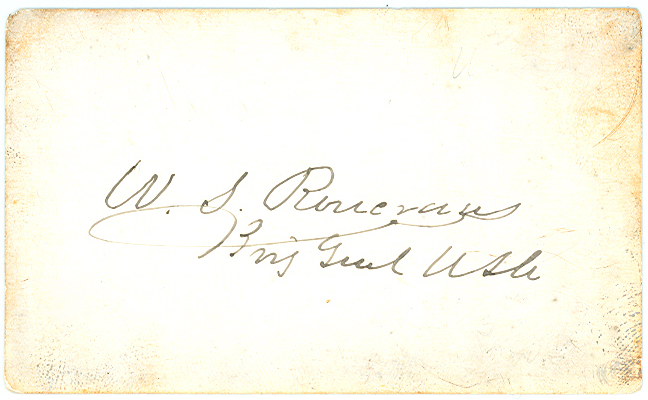 W. S. Rosecrans
Brig Genl USA